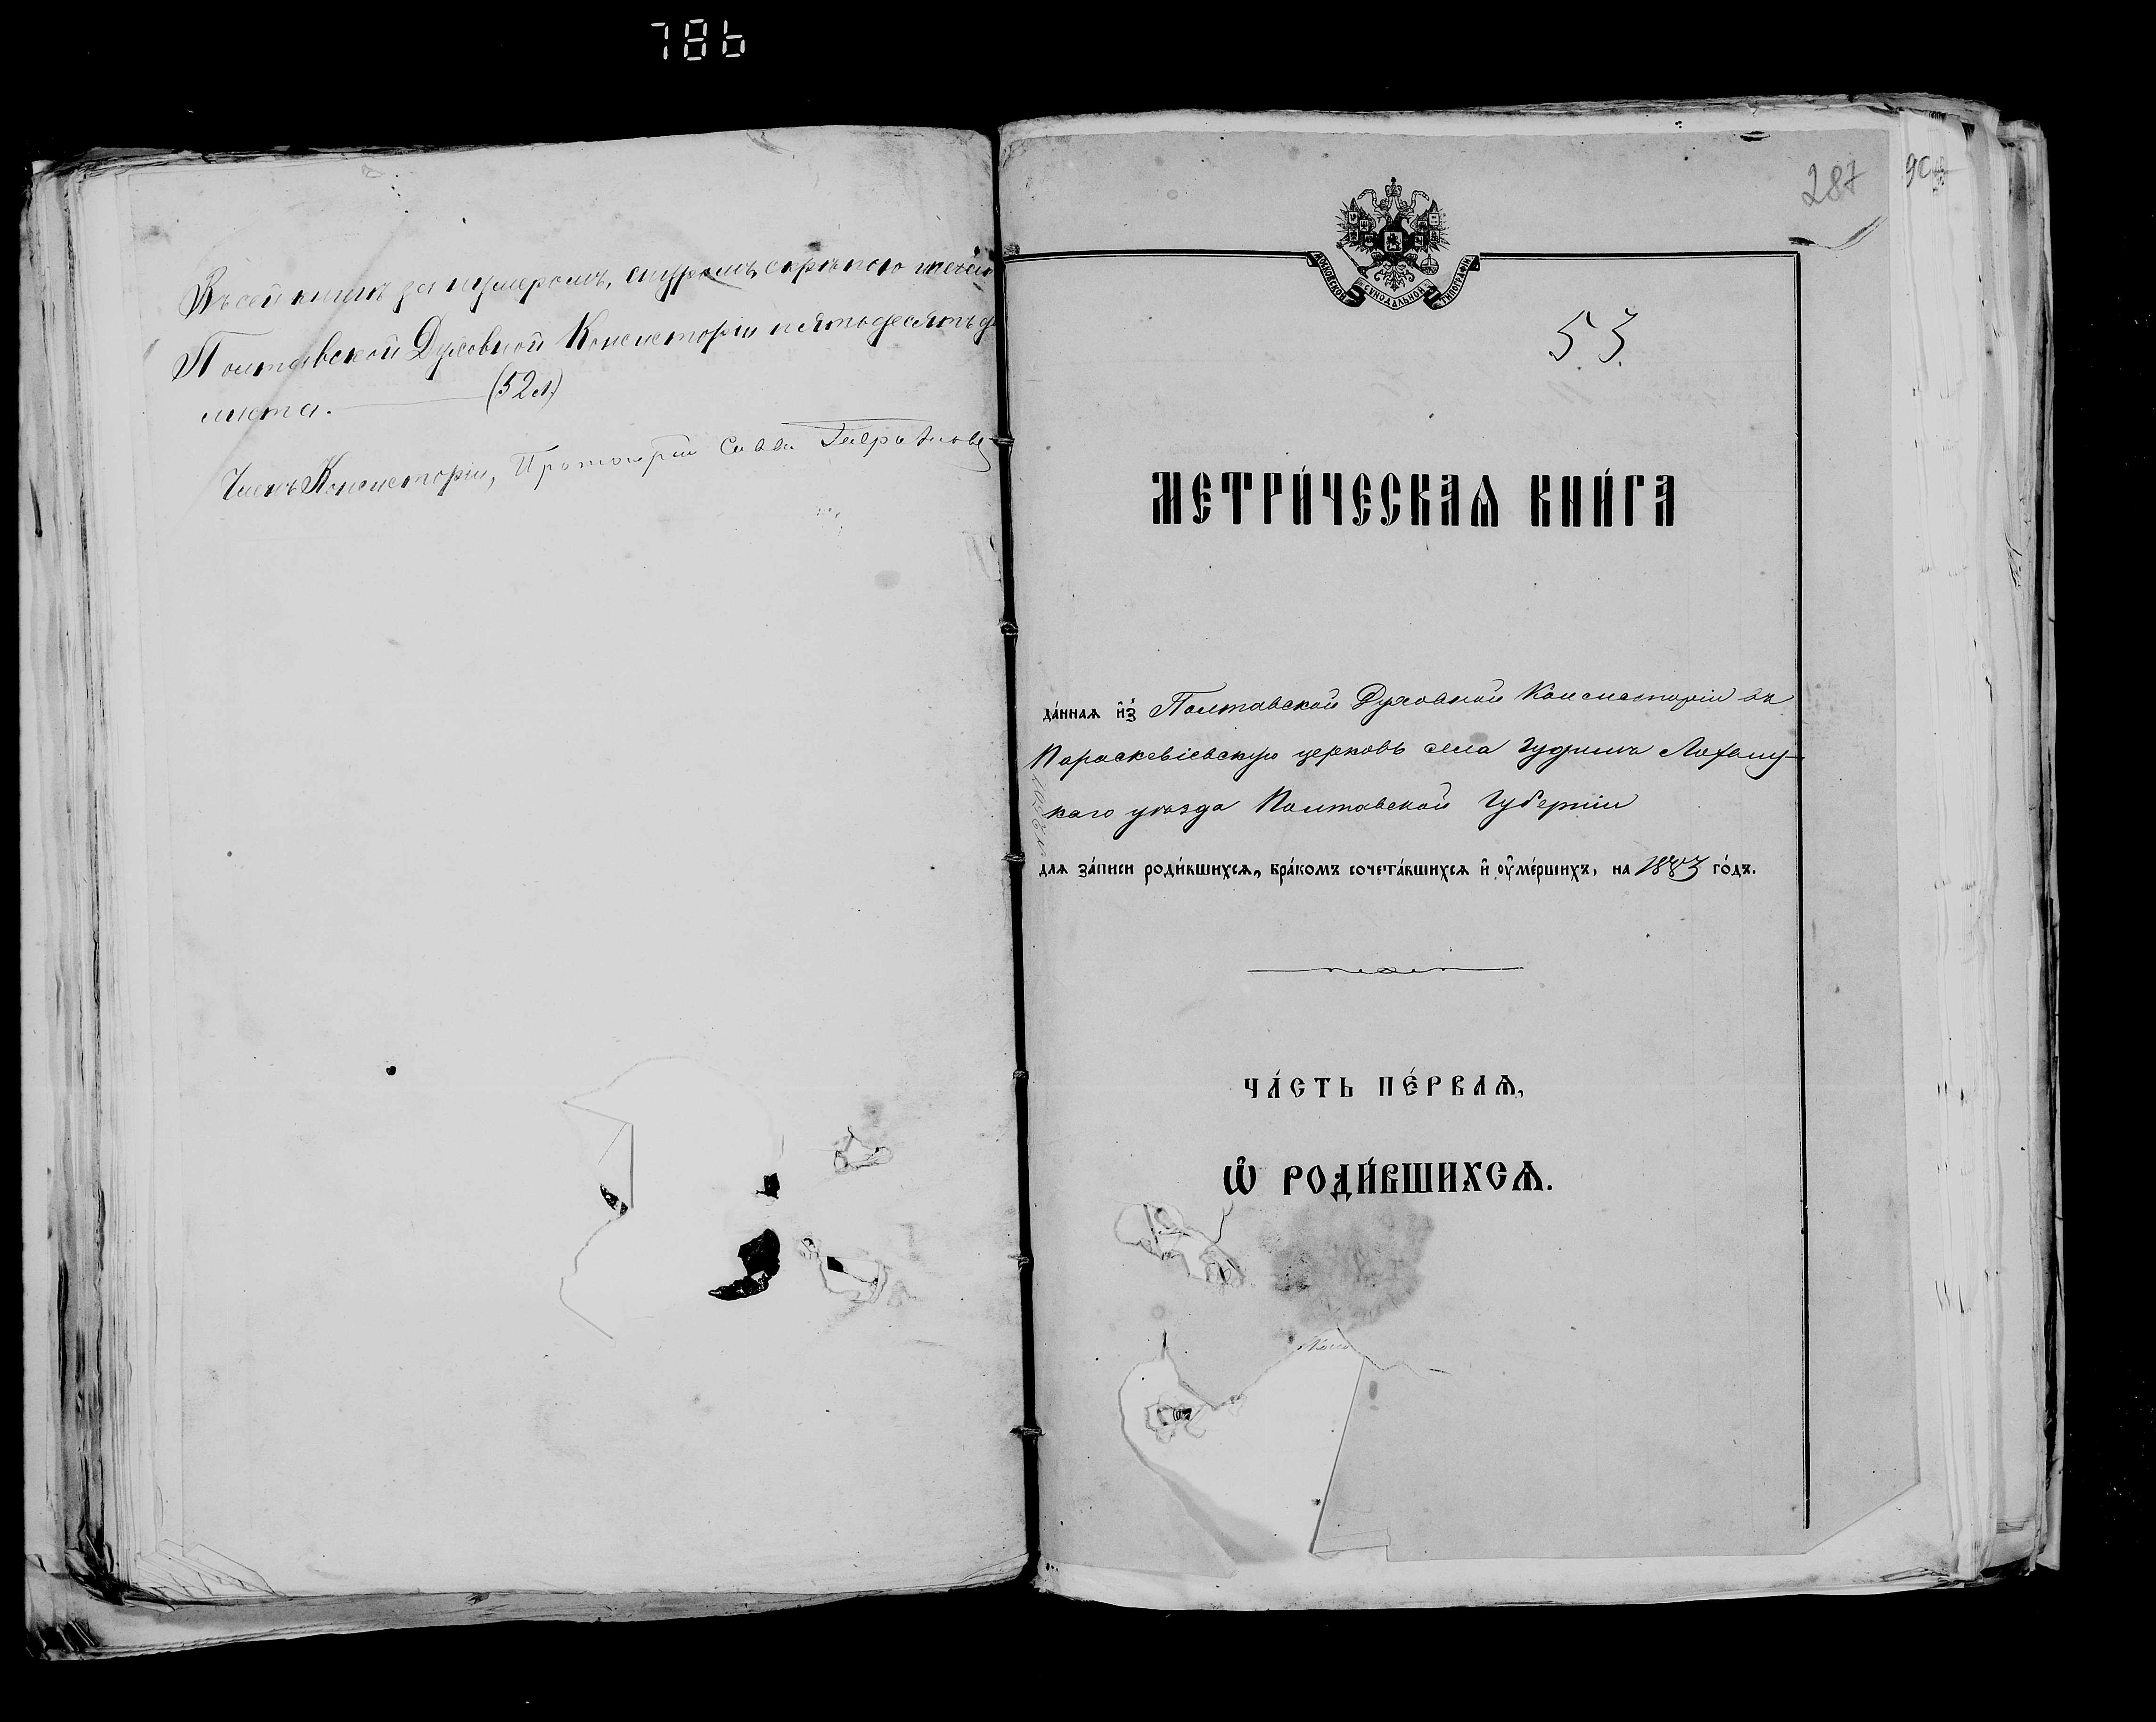 786
Въ сей книгѣ за нумеромъ, шнуромъ, скрѣпою и печатью
Полтавской Духовной Консисторіи пятьдесятъ
листа. (52 л.)
Членъ Консисторіи, Протоіерей Савва
287
90
МОСКОВСКОЙ СѴНОДАЛЬНОЙ ТИПОГРАФІИ
53.
МЕТРИ́ЧЕСКАѦ КНИ́ГА
да́ннаѧ и҆з̾ Полтавской Духовной Консисторіи въ
Параскевіевскую церковь села Гудимъ Лохвиц-
каго уѣзда Полтавской Губерніи
для за́писи роди́вшихсѧ, бра́комъ сочета́вшихсѧ и҆ ᲂу҆ме́ршихъ, на 1883 го́дъ.
ЧА́СТЬ ПЕ́РВАѦ,
Ѡ҆ РОДИ́ВШИХСѦ.